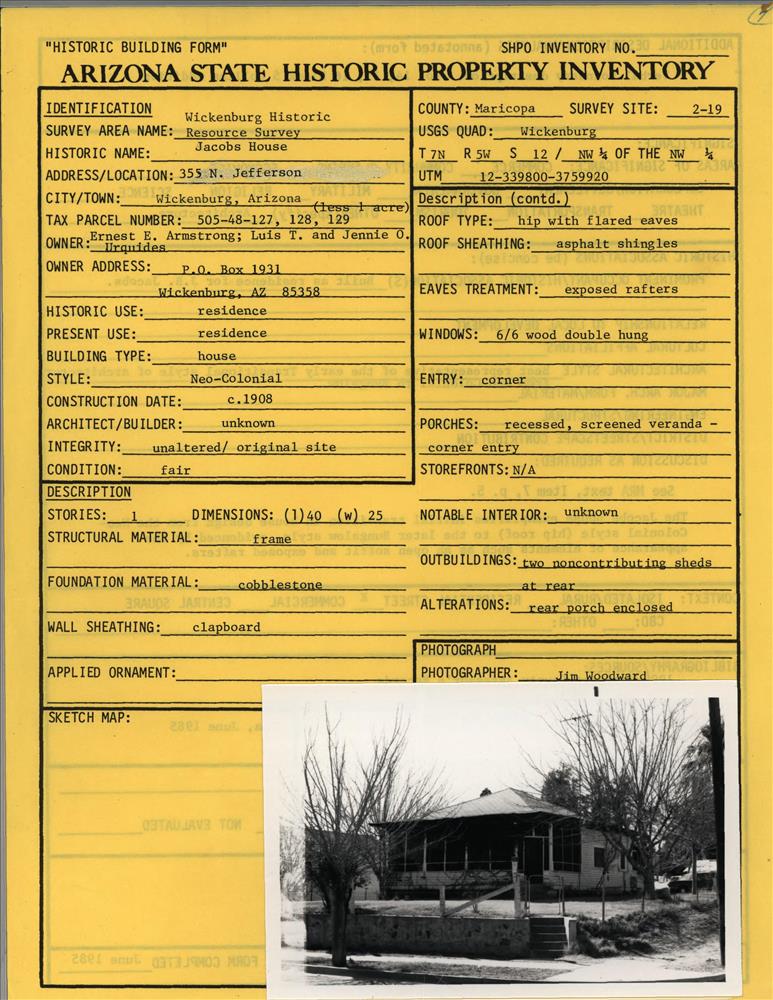 "HISTORIC BUILDING FORM"
SHPO INVENTORY NO.
ARIZONA STATE HISTORIC PROPERTY INVENTORY
IDENTIFICATION
SURVEY AREA NAME: Wickenburg Historic
Resource Survey
HISTORIC NAME: Jacobs House
ADDRESS/LOCATION: 355 N. Jefferson
CITY/TOWN: Wickenburg, Arizona
(less 1 acre)
TAX PARCEL NUMBER: 505-48-127, 128, 129
OWNER: Ernest E. Armstrong; Luis T. and Jennie O.
Urquides
OWNER ADDRESS: P.O. Box 1931
Wickenburg, AZ 85358
HISTORIC USE: residence
PRESENT USE: residence
BUILDING TYPE: house
STYLE: Neo-Colonial
CONSTRUCTION DATE: c.1908
ARCHITECT/BUILDER: unknown
INTEGRITY: unaltered/ original site
CONDITION: fair
DESCRIPTION
STORIES: 1 DIMENSIONS: (1)40 (w) 25
STRUCTURAL MATERIAL: frame
FOUNDATION MATERIAL: cobblestone
WALL SHEATHING: clapboard
APPLIED ORNAMENT:
SKETCH MAP:
COUNTY: Maricopa SURVEY SITE: 2-19
USGS QUAD: Wickenburg
T 7N R 5W S 12 / NW ¼ OF THE NW ¼
UTM 12-339800-3759920
Description (contd.)
ROOF TYPE: hip with flared eaves
ROOF SHEATHING: asphalt shingles
EAVES TREATMENT: exposed rafters
WINDOWS: 6/6 wood double hung
ENTRY: corner
PORCHES: recessed, screened veranda -
corner entry
STOREFRONTS: N/A
NOTABLE INTERIOR: unknown
OUTBUILDINGS: two noncontributing sheds
at rear
ALTERATIONS: rear porch enclosed
PHOTOGRAPH
PHOTOGRAPHER: Jim Woodward